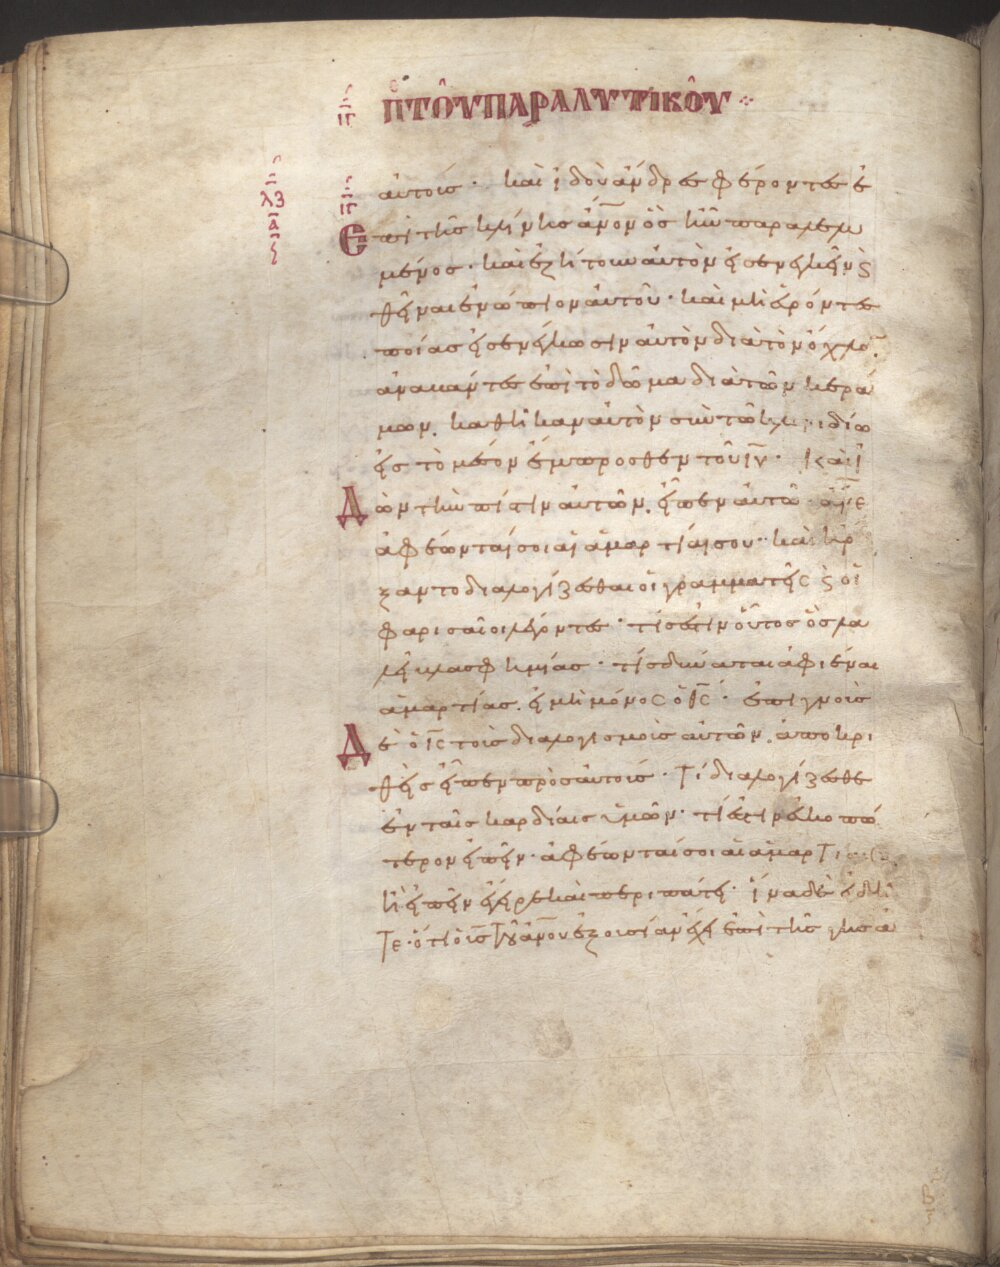 ιγ περὶ τοῦ παραλυτικοῦ
αὐτούς · καὶ ἰδοὺ ἄνδρες φέροντες ἐ
λζ
α
ιγ
πὶ κλίνης ἄνον ὃς ἦν παραλελυ
μένος · καὶ ἐζήτουν αὐτὸν εἰσενεγκεῖν ϗ
θεῖναι ἐνώπιον αὐτοῦ · καὶ μὴ εὑρόντες
ποίας εἰσενέγκωσιν αὐτὸν διὰ τὸν ὄχλο
ἀναβάντες ἐπὶ τὸ δῶμα διὰ τῶν κερά
μων, καθῆκαν αὐτὸν σὺν τῷ κλινιδίω
εἰς τὸ μέσον ἔμπροσθεν τοῦ ιυ · Καὶ ἰ
Δὼν τὴν πίστιν αὐτῶν, εἶπεν αὐτῶ · ἄνε
ἀφέωνταί σοι αἱ ἁμαρτίαι σου · καὶ ἤρ
ξαντο διαλογίζεσθαι οἱ γραμματεῖς ϗ οἱ
φαρισαῖοι λέγοντες · τίς ἐστιν οὗτος ὃς λα
λεῖ βλασφημίας · τίς δύναται ἀφιέναι
ἁμαρτίας, εἰ μὴ μόνος ὁ θς · ἐπιγνοὺς
Δὲ ὁ ις τοὺς διαλογισμοὺς αὐτῶν, ἀποκρι
θεὶς εἶπεν πρὸς αὐτούς · Τί διαλογίζεσθε
ἐν ταῖς καρδίαις ὑμῶν · τί ἐστιν εὐκοπώ
τερον εἰπεῖν · ἀφέωνταί σοι αἱ ἁμαρτίαι
ἢ εἰπεῖν ἔγειρε καὶ περιπάτει · ἵνα δὲ εἰδῆ
Τε · ὅτι ὁ υς Τοῦ ἀνου ἐξουσίαν ἔχει ἐπὶ τῆς γῆς ἀ